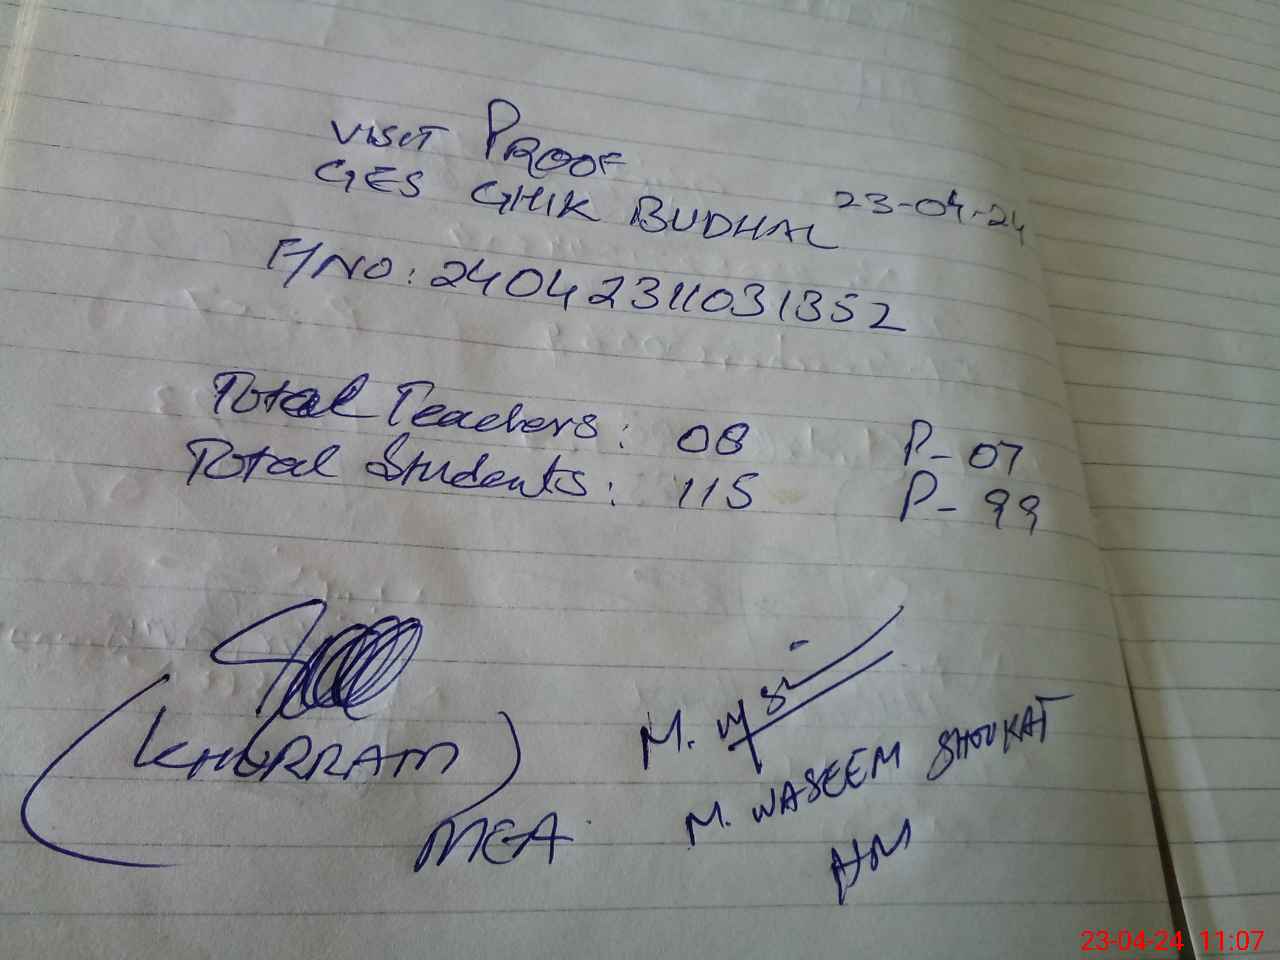 VISIT PROOF
GES GHIK BUDHAL 23-04-24
F/NO: 24042311031352
Total Teachers: 08 P-07
Total Students: 115 P-99
(KHURRAM)
MEA
M.
M. WASEEM SHOUKAT
HM
23-04-24 11:07